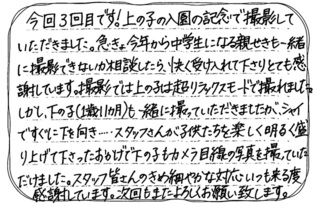 今回3回目です。上の子の入園の記念で撮影して
いただきました。急きょ今年から中学生になる親せきも一緒
に撮影できないか相談したら、快く受け入れて下さりとても感
謝しています。撮影では上の子は超リラックスモードで撮れました。
しかし、下の子(1歳11か月)も一緒に撮っていただきましたが、シャイ
ですぐに下を向き……スタッフさんが子供たちを楽しく明るく盛
り上げて下さったおかげで下の子もカメラ目線の写真を撮っていた
だけました。スタッフ皆さんのきめ細やかな対応いつも来る度
感謝しています。次回もまたよろしくお願い致します。